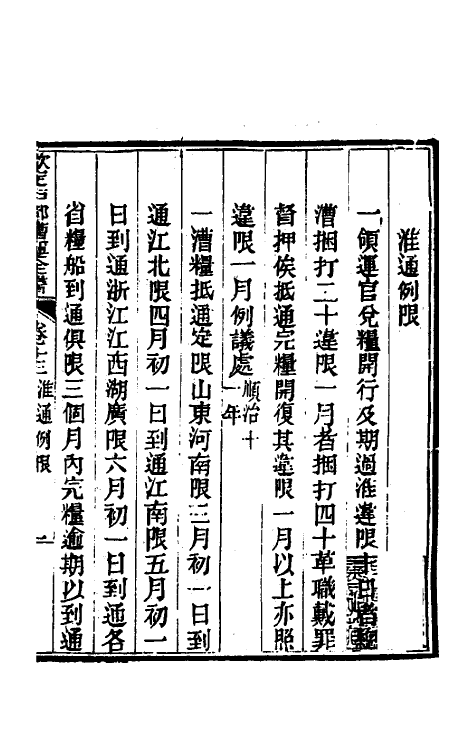 淮通例限
一領運官兌糧開行及期過淮違限十日者總
漕捆打二十違限一月者捆打四十革職戴罪
督押俟抵通完糧開復其違限一月以上亦照
違限一月例議處順治十
一年
一漕糧抵通定限山東河南限三月初一日到
通江北限四月初一日到通江南限五月初一
日到通浙江江西湖廣限六月初一日到通各
省糧船到通俱限三個月內完糧逾期以到通
欽定戶部漕運全書 卷十三 淮通例限 一